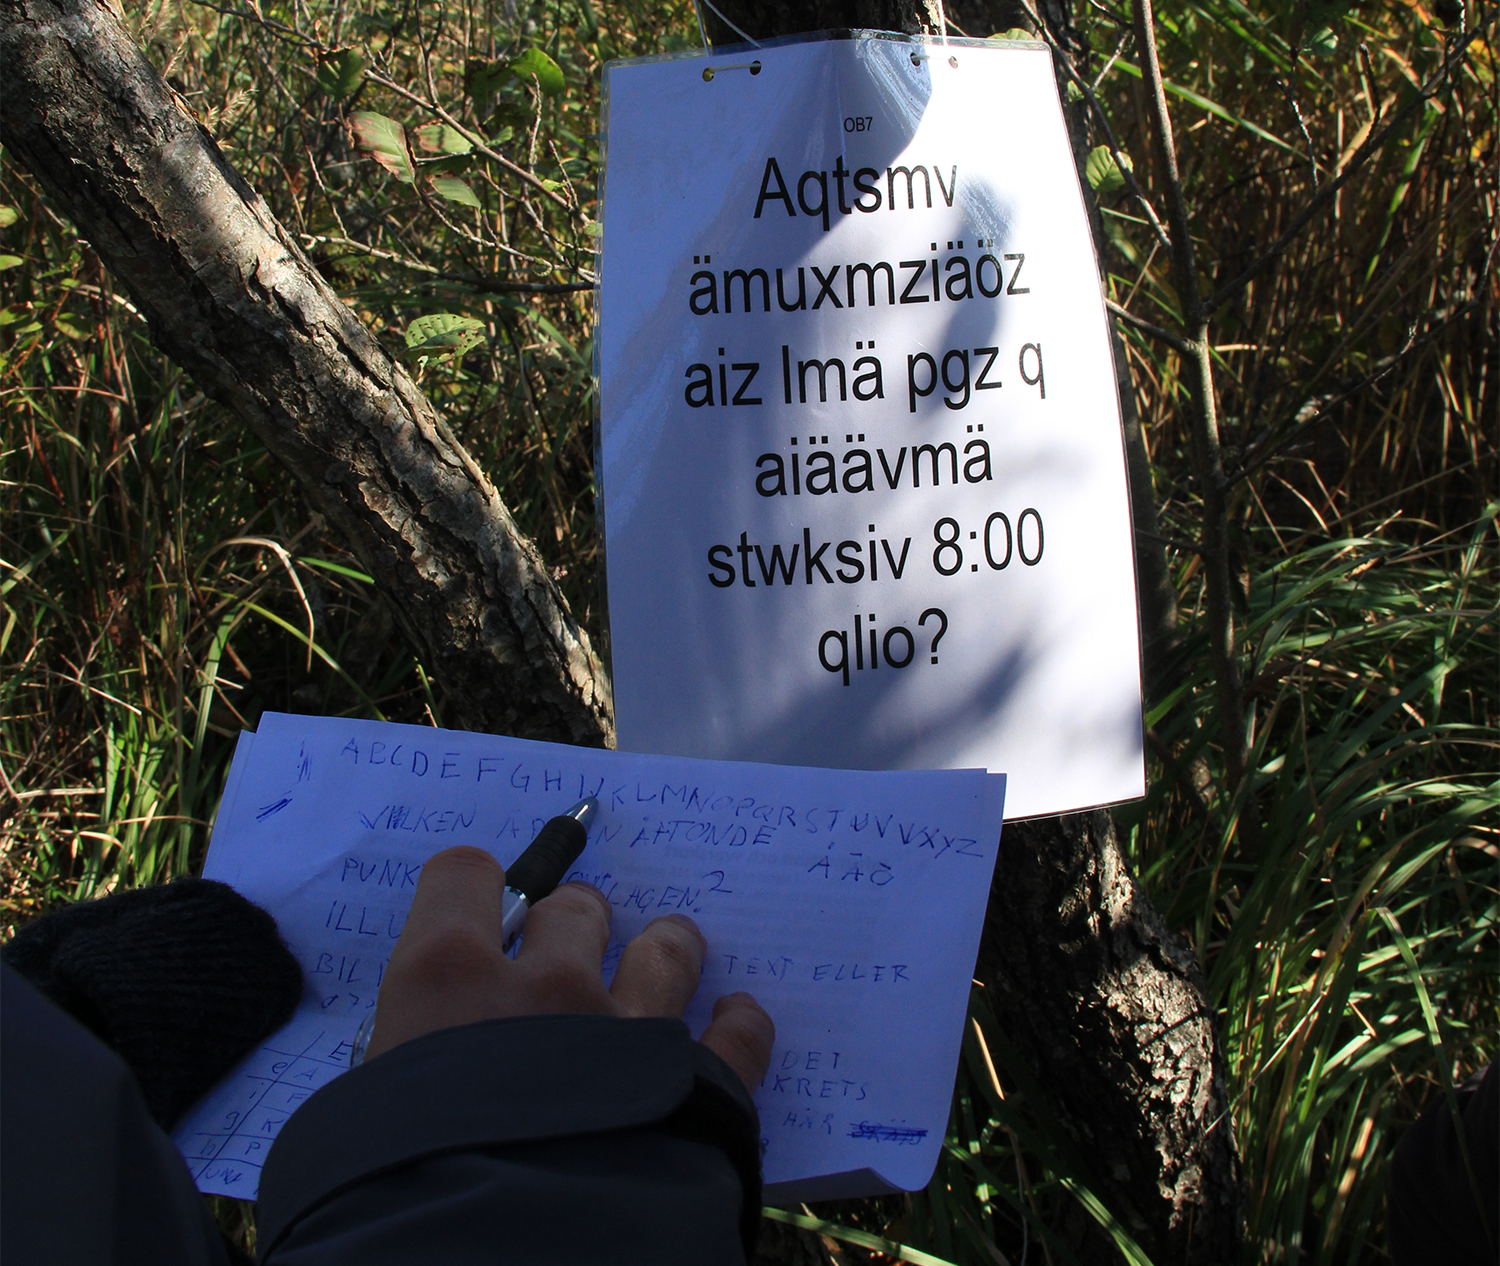 OB7
Aqtsmv
ämuxmziäöz
aiz lmä pgz q
aiäävmä
stwksiv 8:00
qlio?
ABCDEFGHIJKLMNOPQRSTUVVXYZ
ÅÄÖ
VILKEN ÅTTONDE
PUNK LAGEN?
ILLU
BIL TEXT ELLER
DET
KRETS
HÄR